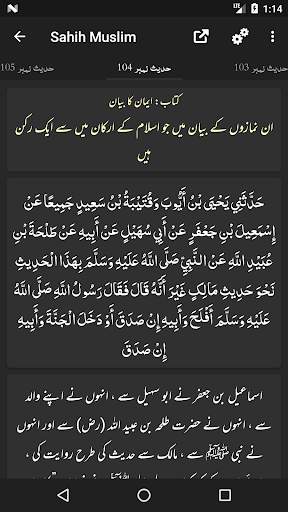 1:14
Sahih Muslim
حدیث نمبر 103
حدیث نمبر 104
حدیث نمبر 105
کتاب: ایمان کا بیان
ان نمازوں کے بیان میں جو اسلام کے ارکان میں سے ایک رکن
ہیں
حَدَّثَنِي يَحْيَی بْنُ أَيُّوبَ وَقُتَيْبَةُ بْنُ سَعِيدٍ جَمِيعًا عَنْ
إِسْمَعِيلَ بْنِ جَعْفَرٍ عَنْ أَبِي سُهَيْلٍ عَنْ أَبِيهِ عَنْ طَلْحَةَ بْنِ
عُبَيْدِ اللَّهِ عَنْ النَّبِيِّ صَلَّی اللَّهُ عَلَيْهِ وَسَلَّمَ بِهَذَا الْحَدِيثِ
نَحْوَ حَدِيثِ مَالِکٍ غَيْرَ أَنَّهُ قَالَ فَقَالَ رَسُولُ اللَّهِ صَلَّی اللَّهُ
عَلَيْهِ وَسَلَّمَ أَفْلَحَ وَأَبِيهِ إِنْ صَدَقَ أَوْ دَخَلَ الْجَنَّةَ وَأَبِيهِ
إِنْ صَدَقَ
اسماعیل بن جعفر نے ابو سہیل سے ، انہوں نے اپنے والد
سے ، انہوں نے حضرت طلحہ بن عبید اللہ (رض) سے اور انہوں
نے نبی ﷺ سے ، مالک سے حدیث کی طرح روایت کی ،